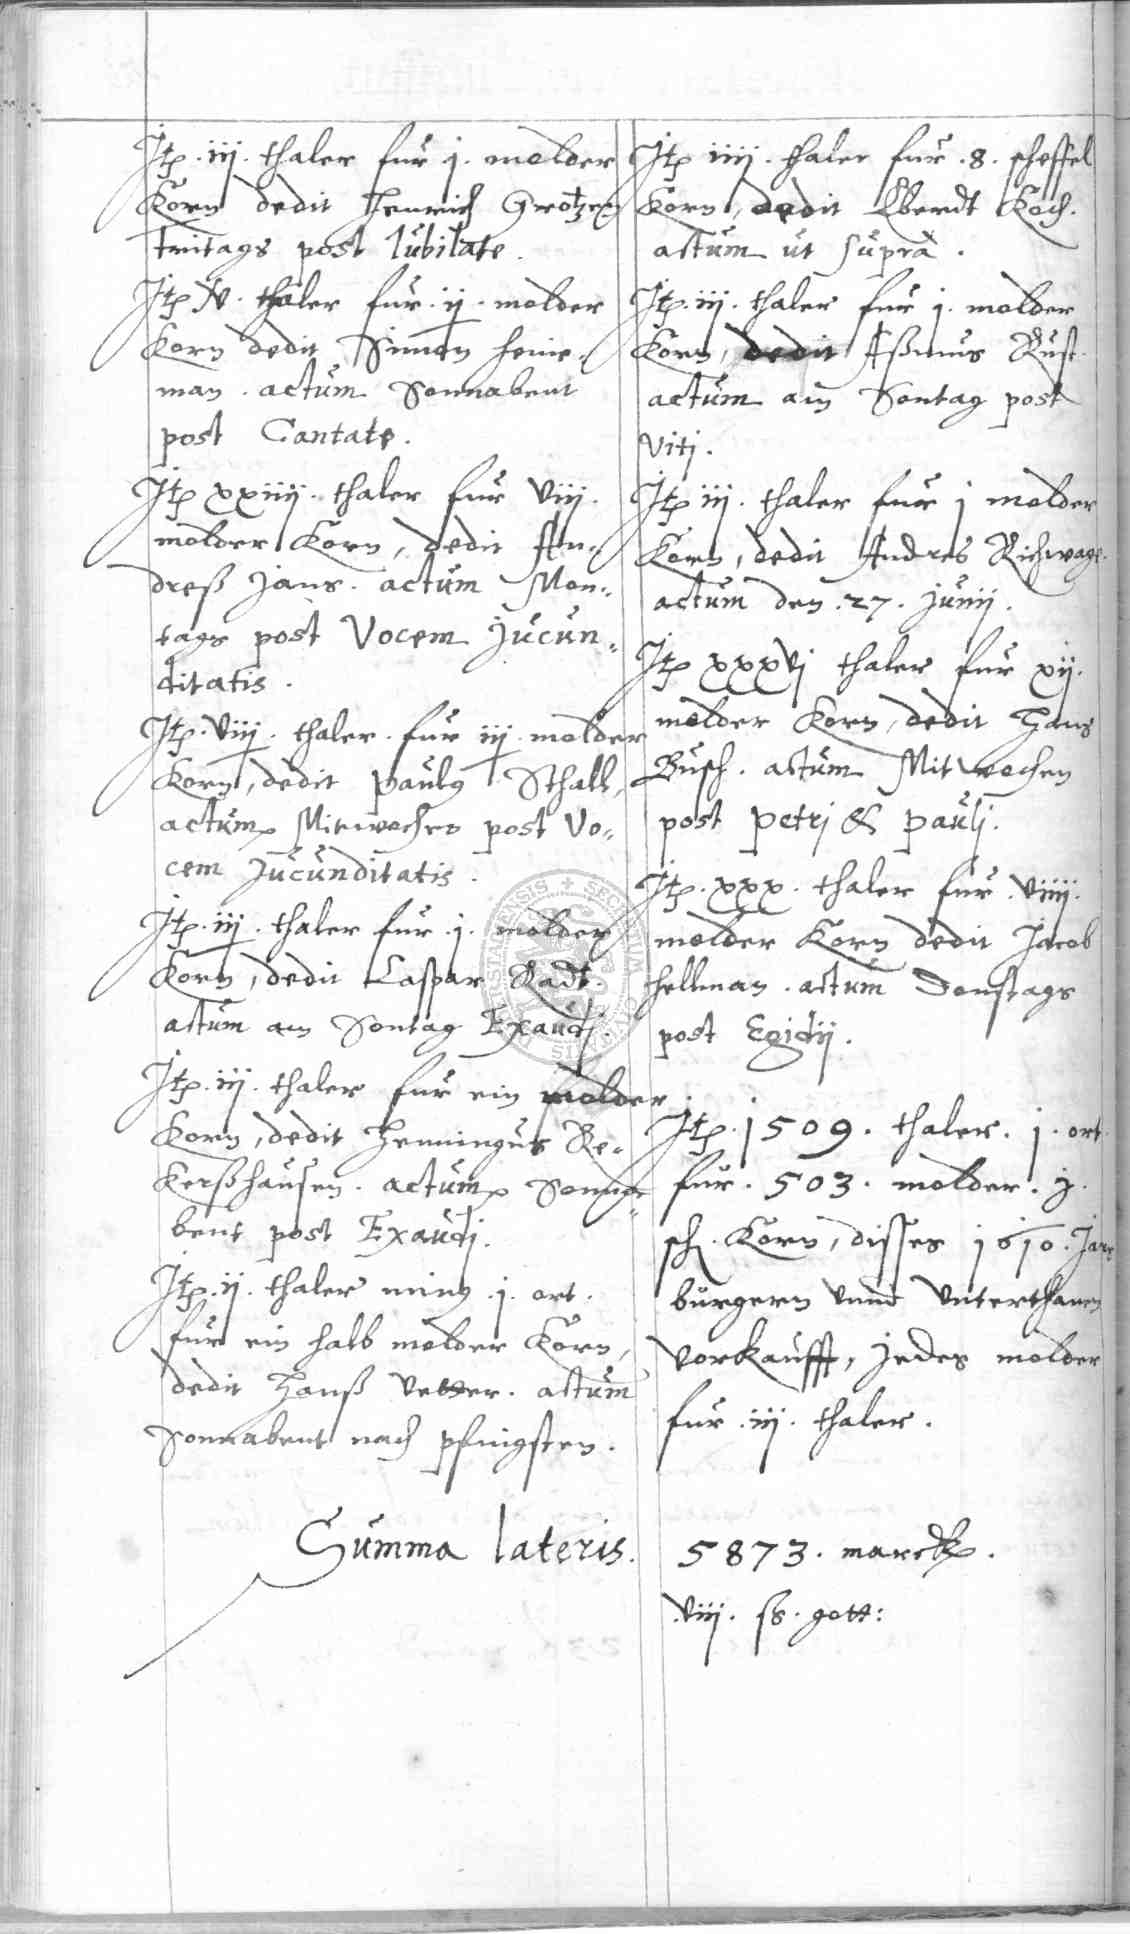 Jtp. iij. thaler fur j. molder
Korn dedit Henrich Grotzen
tritags post Jubilate.
Jtp thaler fur ij. molder
Korn dedit Simon heine-
man. actum Sonnabent
post Cantate.
Jtp xxiiij. thaler fur viij.
molder Korn, dedit An-
dreß Jans. actum Mon-
tags post Vocem Jucun-
ditatis.
Jtp. viiij. thaler. fur iij. molder
Korn, dedit Paulus Sthall,
actum Mitwochen post Vo-
cem Jucunditatis.
Jtp. iij. thaler fur j. molder
Korn, dedit Caspar Radt.
actum am Sontag Exaudj.
Jtp. iij. thaler fur ein molder
Korn, dedit Henningus Re-
kerßhausen. actum Sonna-
bent post Exaudj.
Jtp. ij. thaler minus j. ort.
fur ein halb molder Korn,
dedit Hanß Vetter. actum
Sonnabent nach pfingsten.
Jtp iiij. thaler fur. 8. scheffel
Korn, dedit Eberdt Koch.
actum ut supra.
Jtp. iij. thaler fur j. molder
Korn, dedit Aßmus Rust.
actum am Sontag post
Viti.
Jtp iij. thaler fur j molder
Korn, dedit Andres Richwage.
actum den. 27. Junij.
Jtp xxxvj thaler fur xij.
molder Korn, dedit Hans
Busch. actum Mitwochen
post Petrj & Paulj.
Jtp. xxx. thaler fur. viiij.
molder Korn dedit Jacob
hellman. actum Donstags
post Egidij.
Jtp. 1509. thaler. j. ort.
fur. 503. molder. j.
sch. Korn, disses 1610. Jars
burgern vnnd vnterthanen
vorkaufft, jedes molder
fur. iij. thaler.
Summa lateris. 5873. marck.
viij. ß. gott: